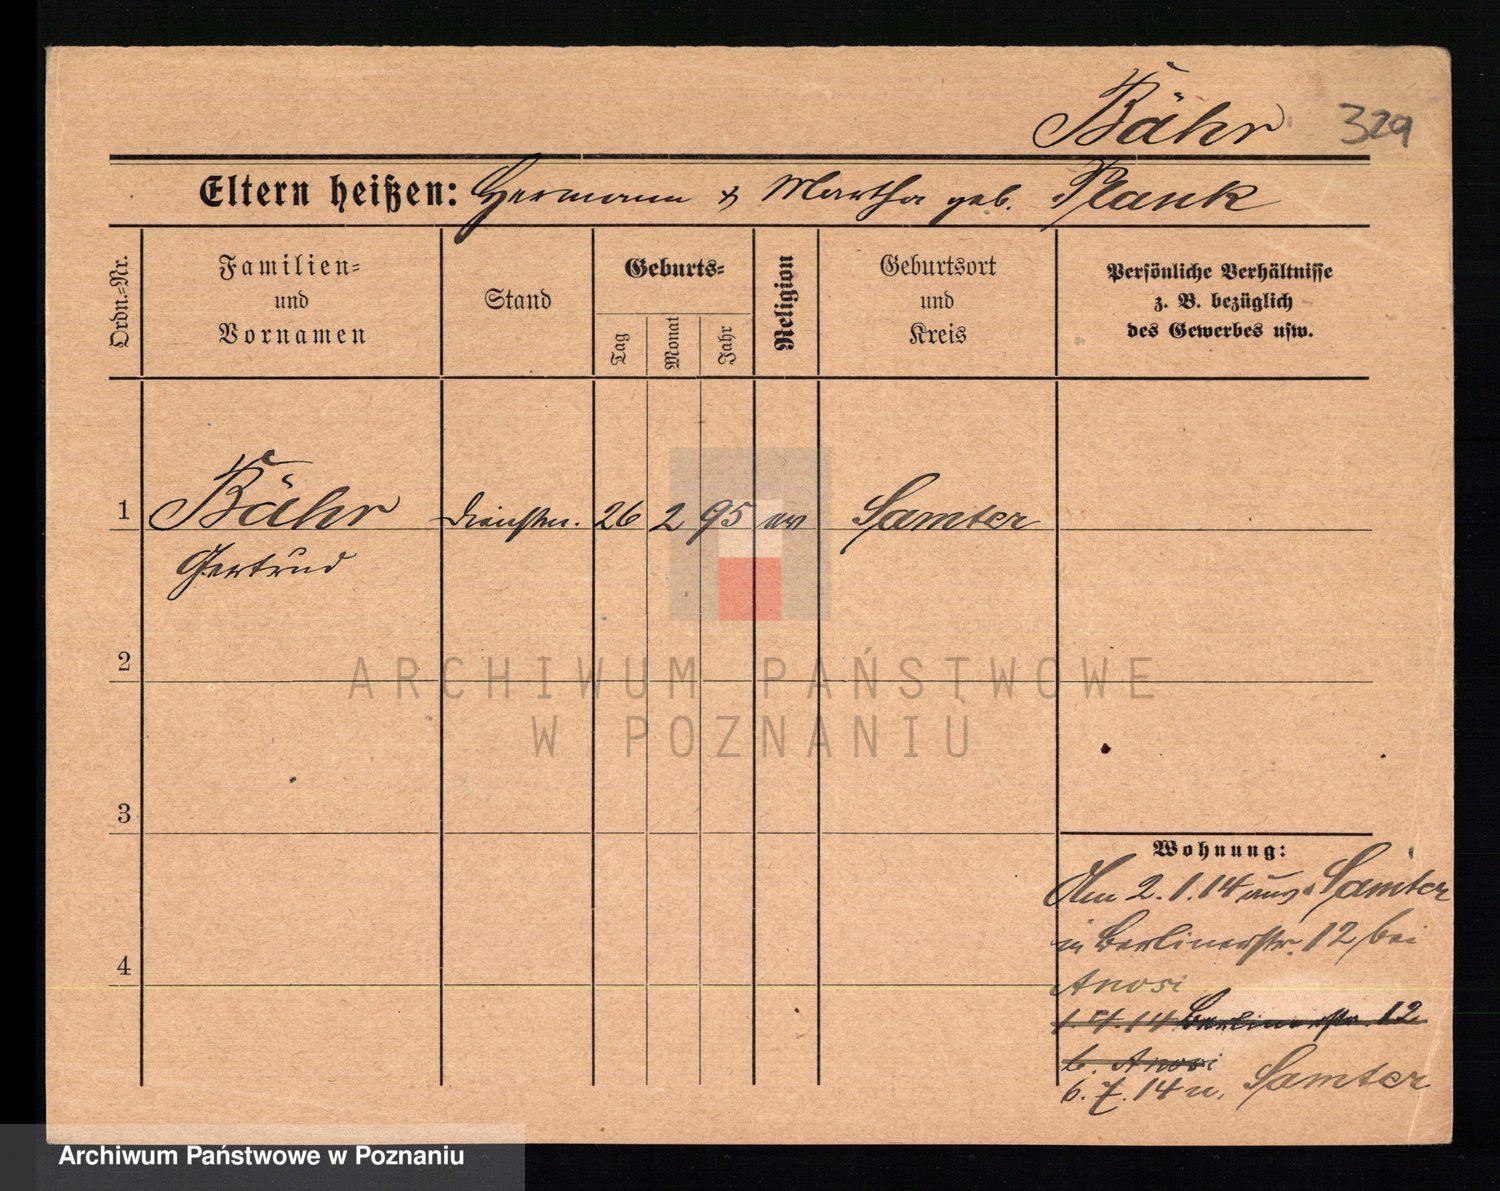 Bähr 329
Eltern heißen: Hermann & Martha geb. Plank
Ordn.=Nr.
Familien=
und
Vornamen
Stand
Geburts=
Tag
Monat
Jahr
Religion
Geburtsort
und
Kreis
Persönliche Verhältnisse
z. B. bezüglich
des Gewerbes usw.
1 Bähr Dienstm. 26 2 95 ev Samter
Gertrud
2
ARCHIWUM PAŃSTWOWE
W POZNANIU
3
Wohnung:
Am 2.1.14 aus Samter
in Berlinerstr. 12 bei
4
Anosi
14 Berlinerstr. 12
b. Anosi
6.7.14 n. Samter
Archiwum Państwowe w Poznaniu